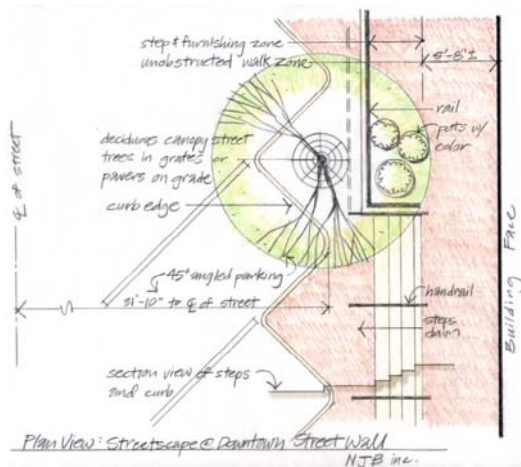 step & furnishing zone
unobstructed walk zone
5'-8"±
rail
pots w/
color
deciduous canopy street
trees in grates or
pavers on grade
curb edge
℄ of street
45° angled parking
31'-10" to ℄ of street
handrail
steps
down
Building Face
section view of steps
and curb
Plan View: Streetscape @ Downtown Street Wall
NJB inc.